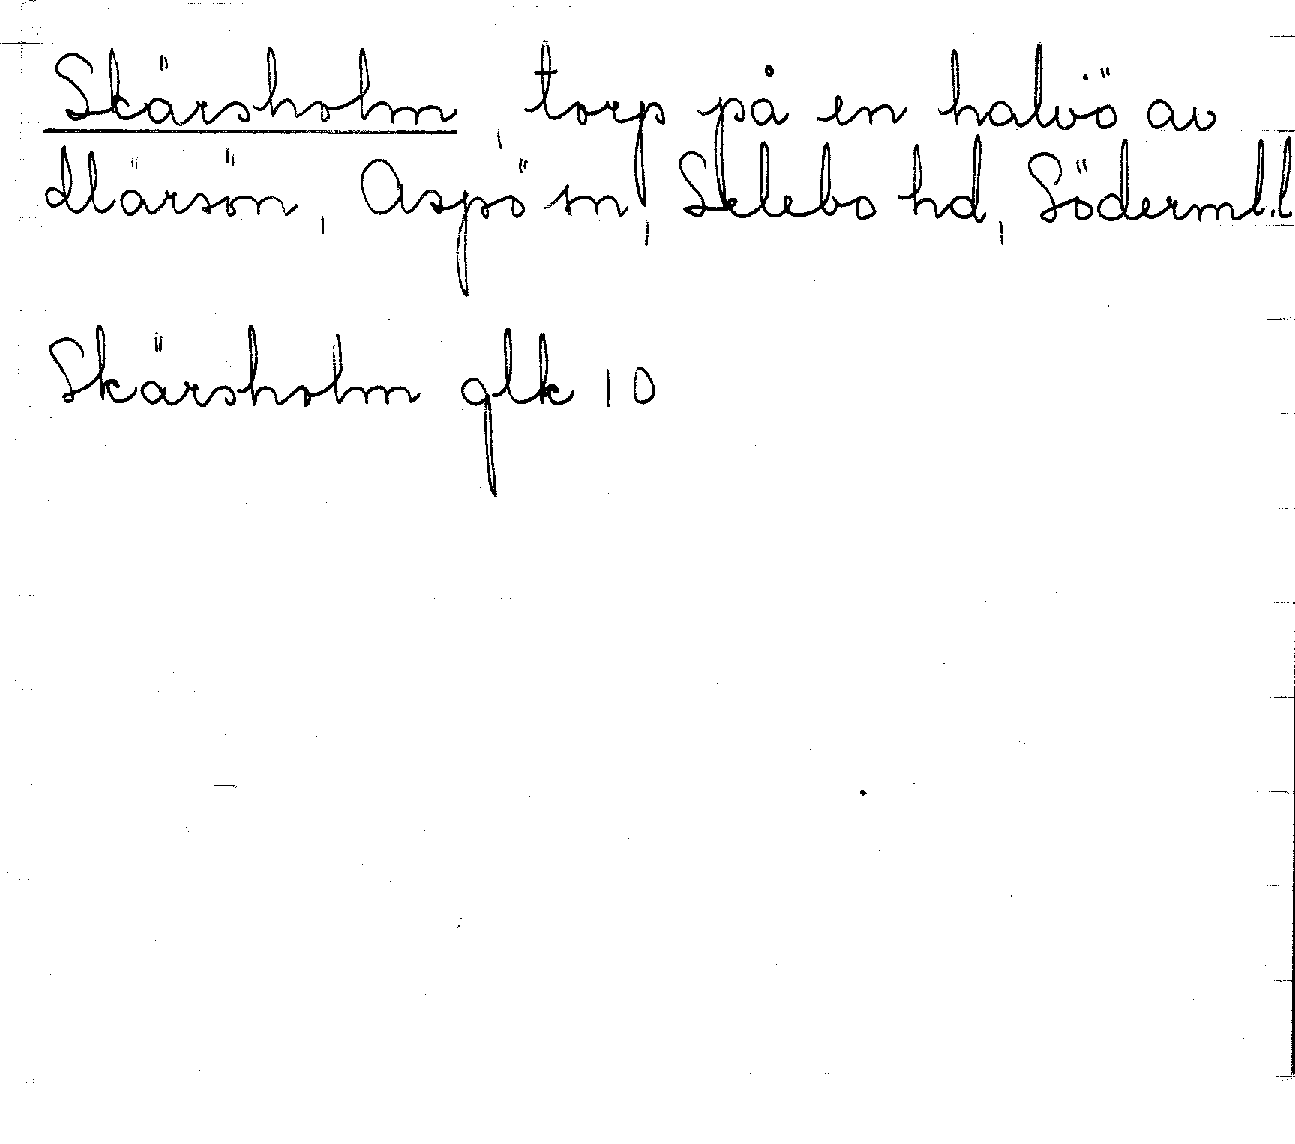 Skärsholm, torp på en halvö av
Märsön, Aspö sn, Selebo hd, Söderml.l
Skärsholm glk 10